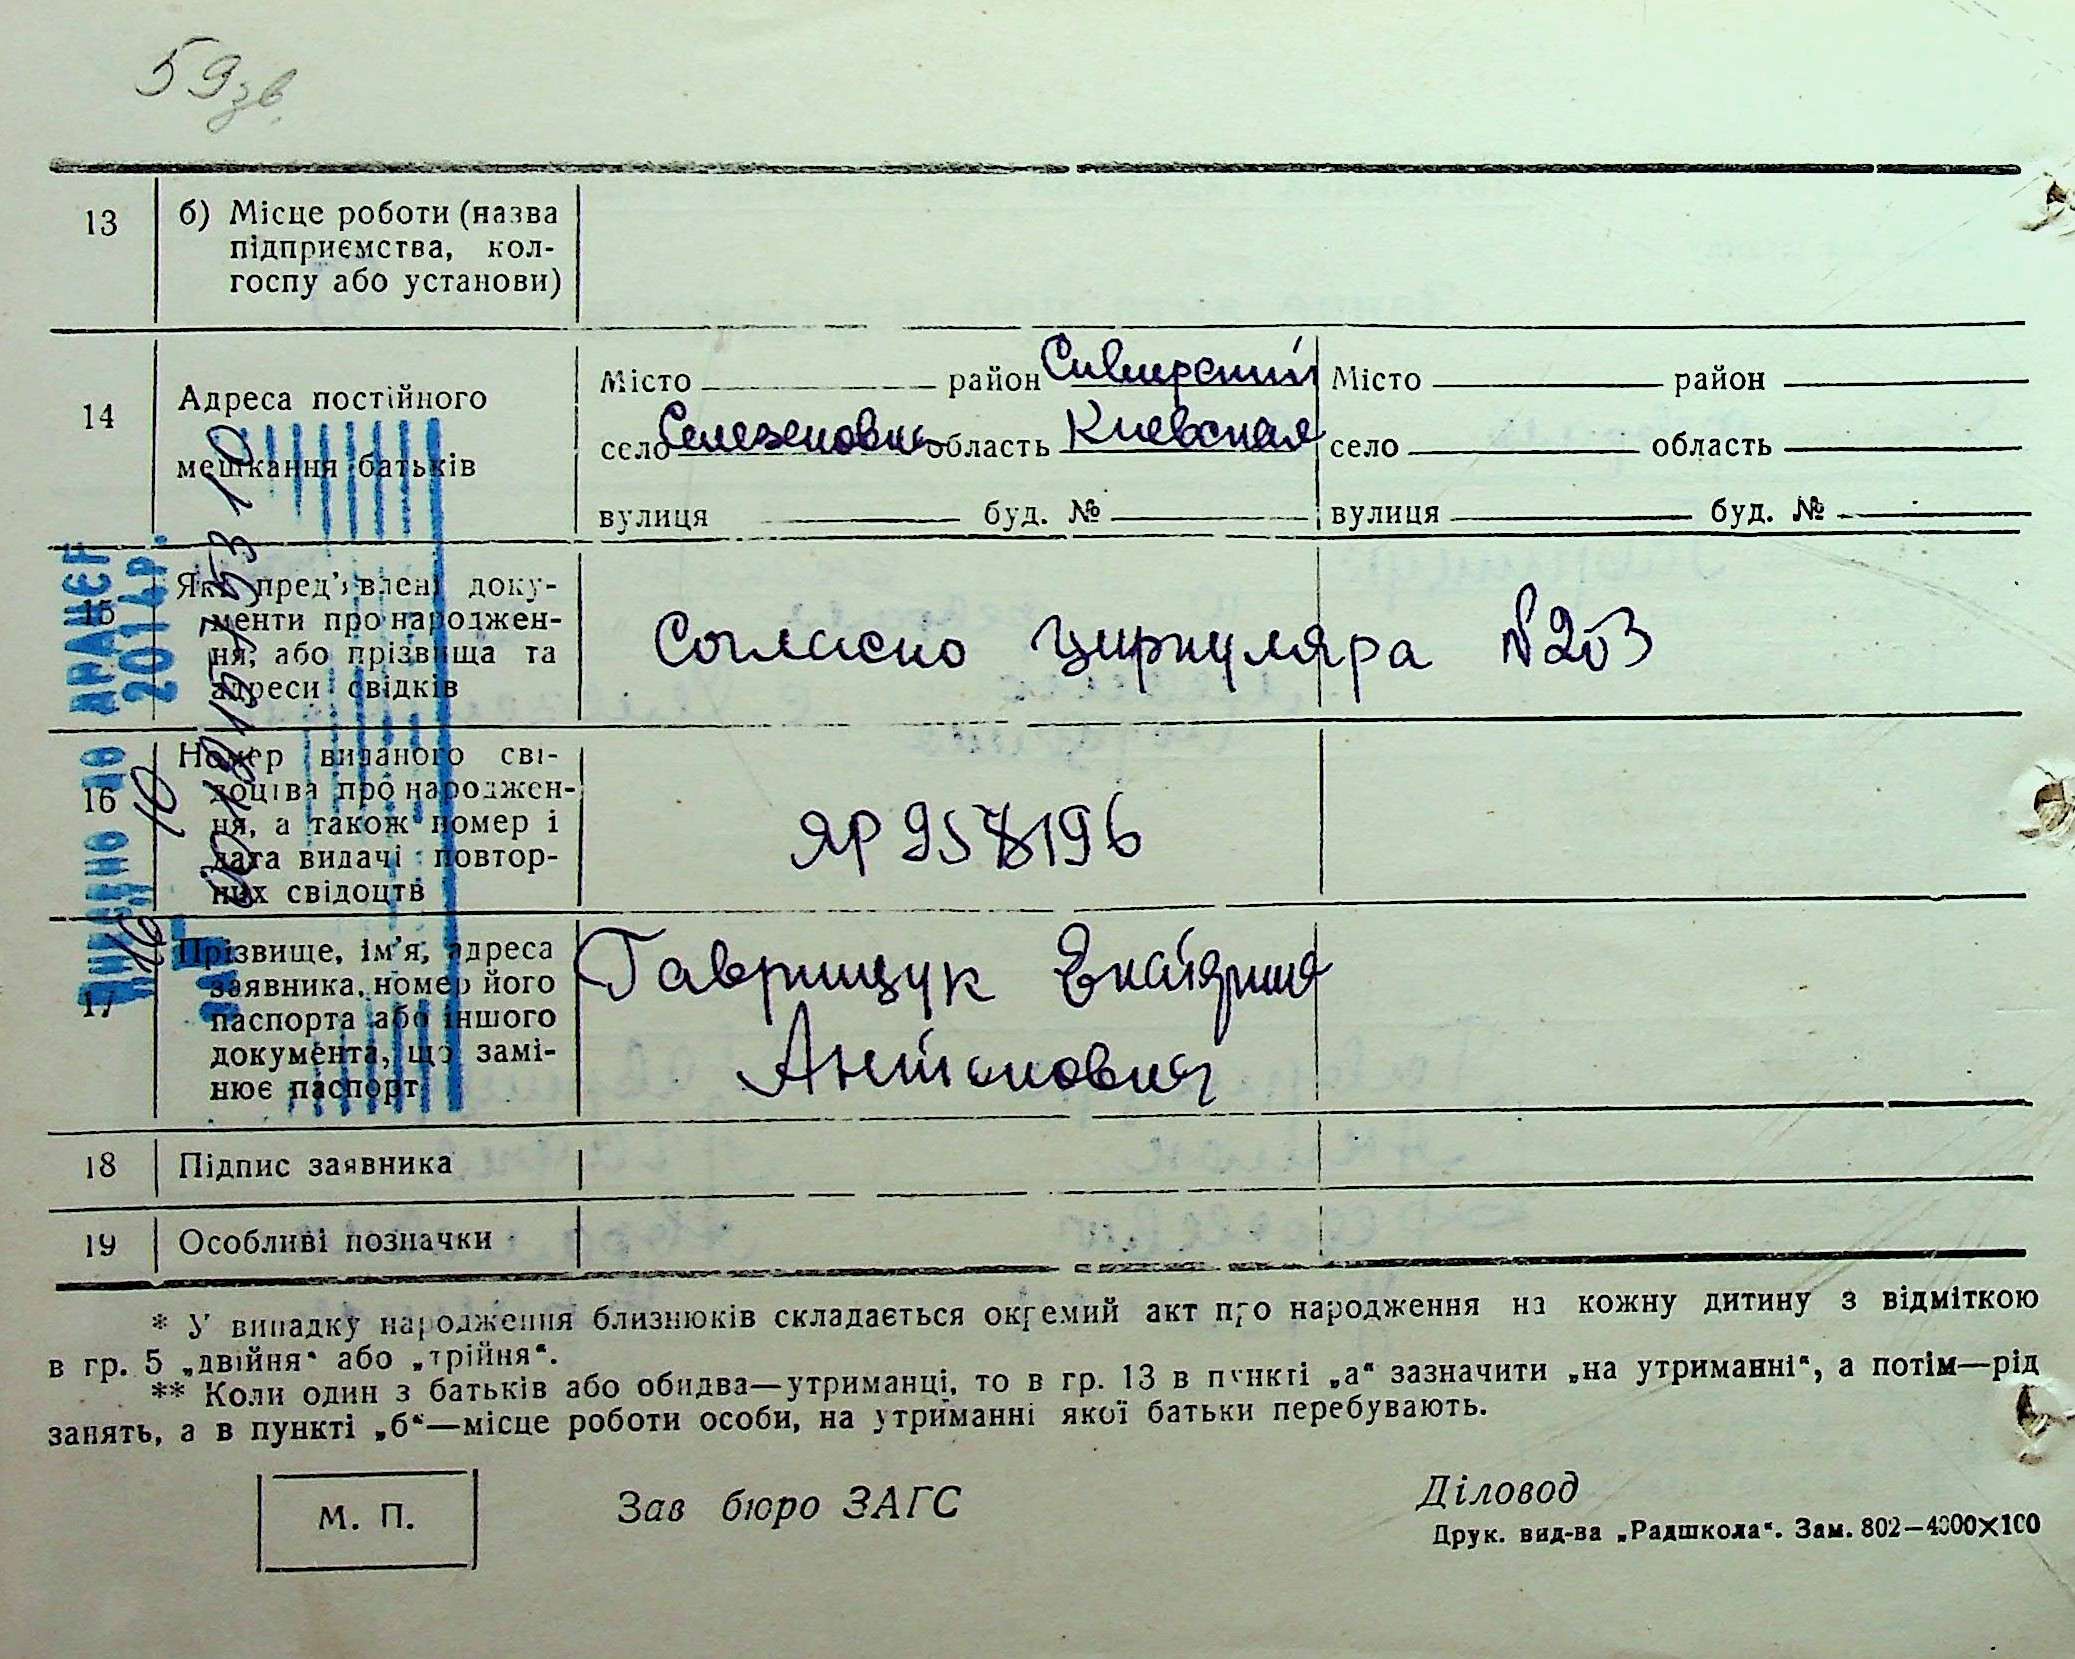 59зв.
13 б) Місце роботи (назва
підприємства, кол-
госпу або установи)
14 Адреса постійного
мешкання батьків
Місто район Сивирский
село область Киевская
вулиця буд. №
Місто район
село область
вулиця буд. №
15 Які пред'явлені доку-
менти про народжен-
ня, або прізвища та
адреси свідків
Согласно циркуляра №203
16 Номер виданого сві-
доцтва про народжен-
ня, а також номер і
дата видачі повтор-
них свідоцтв
ЯР 958196
17 Прізвище, ім'я, адреса
заявника, номер його
паспорта або іншого
документа, що замі-
нює паспорт
Гаврищук Екатярина
Антоновна
18 Підпис заявника
19 Особливі позначки
* У випадку народження близнюків складається окремий акт про народження на кожну дитину з відміткою
в гр. 5 „двійня“ або „трійня“.
** Коли один з батьків або обидва—утриманці, то в гр. 13 в пункті „а“ зазначити „на утриманні“, а потім—рід
занять, а в пункті „б“—місце роботи особи, на утриманні якої батьки перебувають.
М. П.
Зав бюро ЗАГС
Діловод
Друк. вид-ва „Радшкола“. Зам. 802—4000×100
2014р.